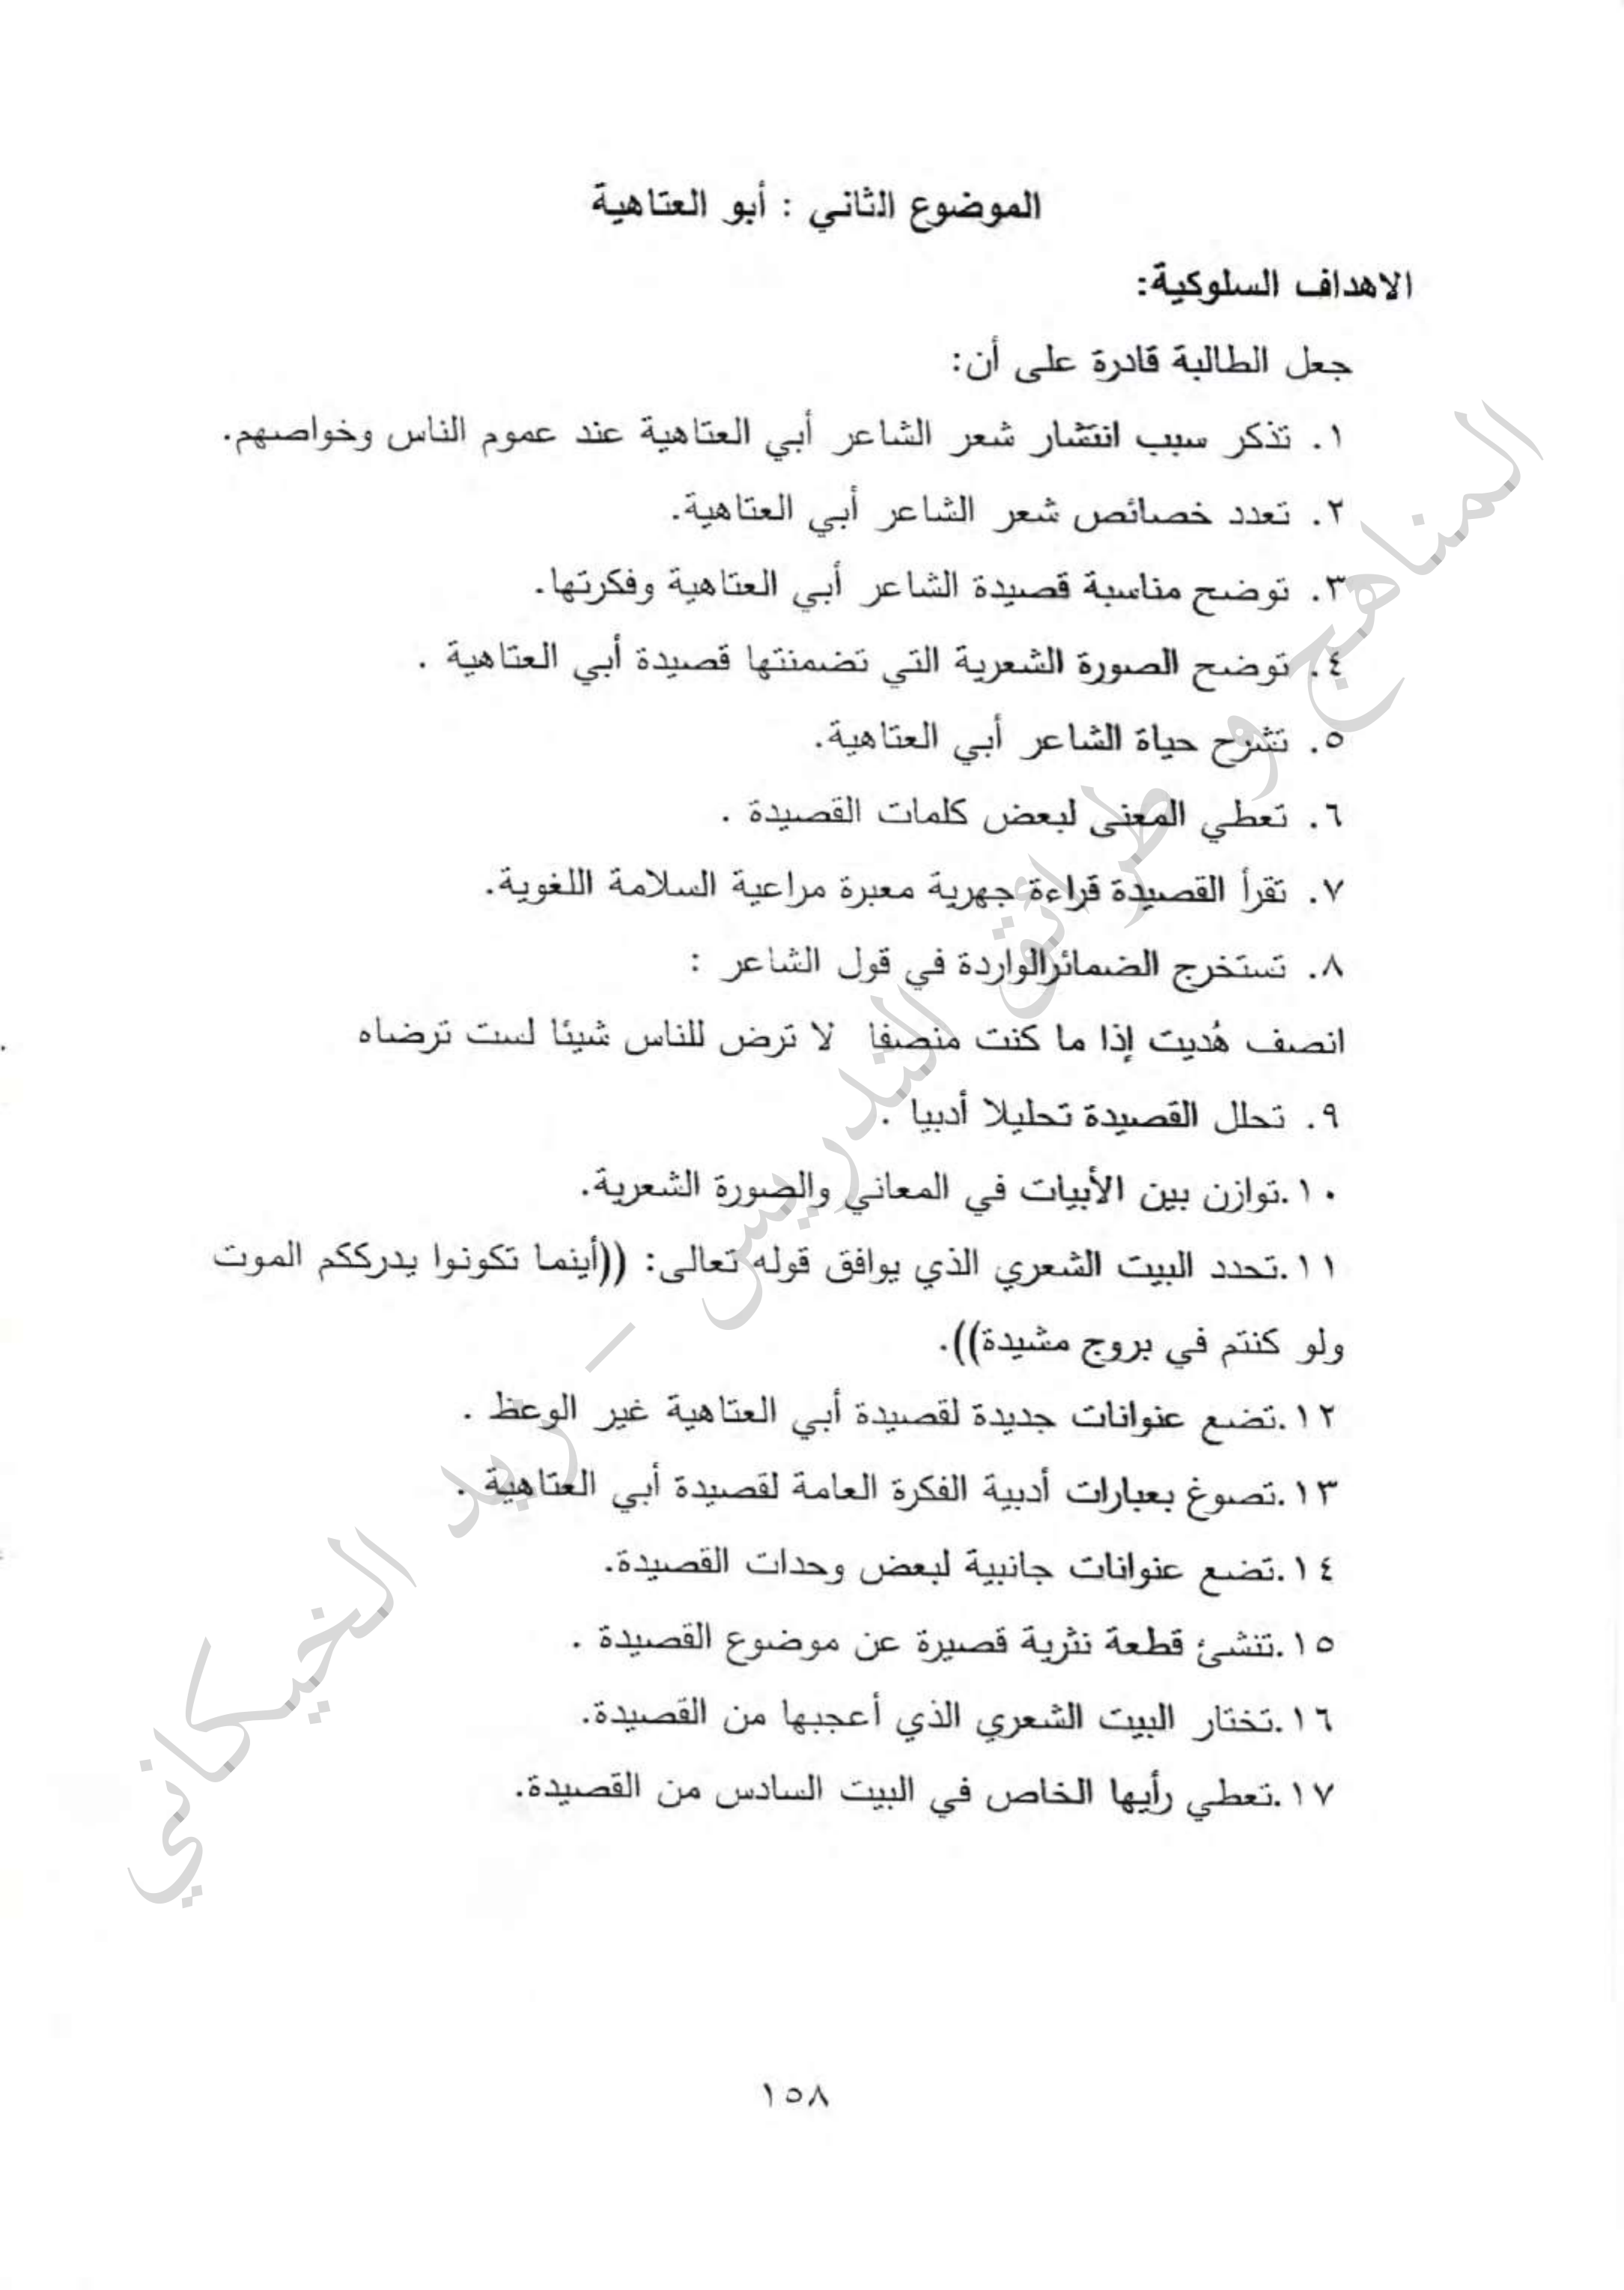 الموضوع الثاني : أبو العتاهية
الاهداف السلوكية:
جعل الطالبة قادرة على أن:
١. تذكر سبب انتشار شعر الشاعر أبي العتاهية عند عموم الناس وخواصهم.
٢. تعدد خصائص شعر الشاعر أبي العتاهية.
٣. توضح مناسبة قصيدة الشاعر أبي العتاهية وفكرتها.
٤. توضح الصورة الشعرية التي تضمنتها قصيدة أبي العتاهية .
٥. تشرح حياة الشاعر أبي العتاهية.
٦. تعطي المعنى لبعض كلمات القصيدة .
٧. تقرأ القصيدة قراءة جهرية معبرة مراعية السلامة اللغوية.
٨. تستخرج الضمائرالواردة في قول الشاعر :
انصف هُديت إذا ما كنت منصفا لا ترض للناس شيئا لست ترضاه
٩. تحلل القصيدة تحليلا أدبيا .
١٠.توازن بين الأبيات في المعاني والصورة الشعرية.
١١.تحدد البيت الشعري الذي يوافق قوله تعالى: ((أينما تكونوا يدرككم الموت
ولو كنتم في بروج مشيدة)).
١٢.تضع عنوانات جديدة لقصيدة أبي العتاهية غير الوعظ .
١٣.تصوغ بعبارات أدبية الفكرة العامة لقصيدة أبي العتاهية .
١٤.تضع عنوانات جانبية لبعض وحدات القصيدة.
١٥.تنشئ قطعة نثرية قصيرة عن موضوع القصيدة .
١٦.تختار البيت الشعري الذي أعجبها من القصيدة.
١٧.تعطي رأيها الخاص في البيت السادس من القصيدة.
١٥٨
المناهج و طرائق التدريس – ريد الخيكاني